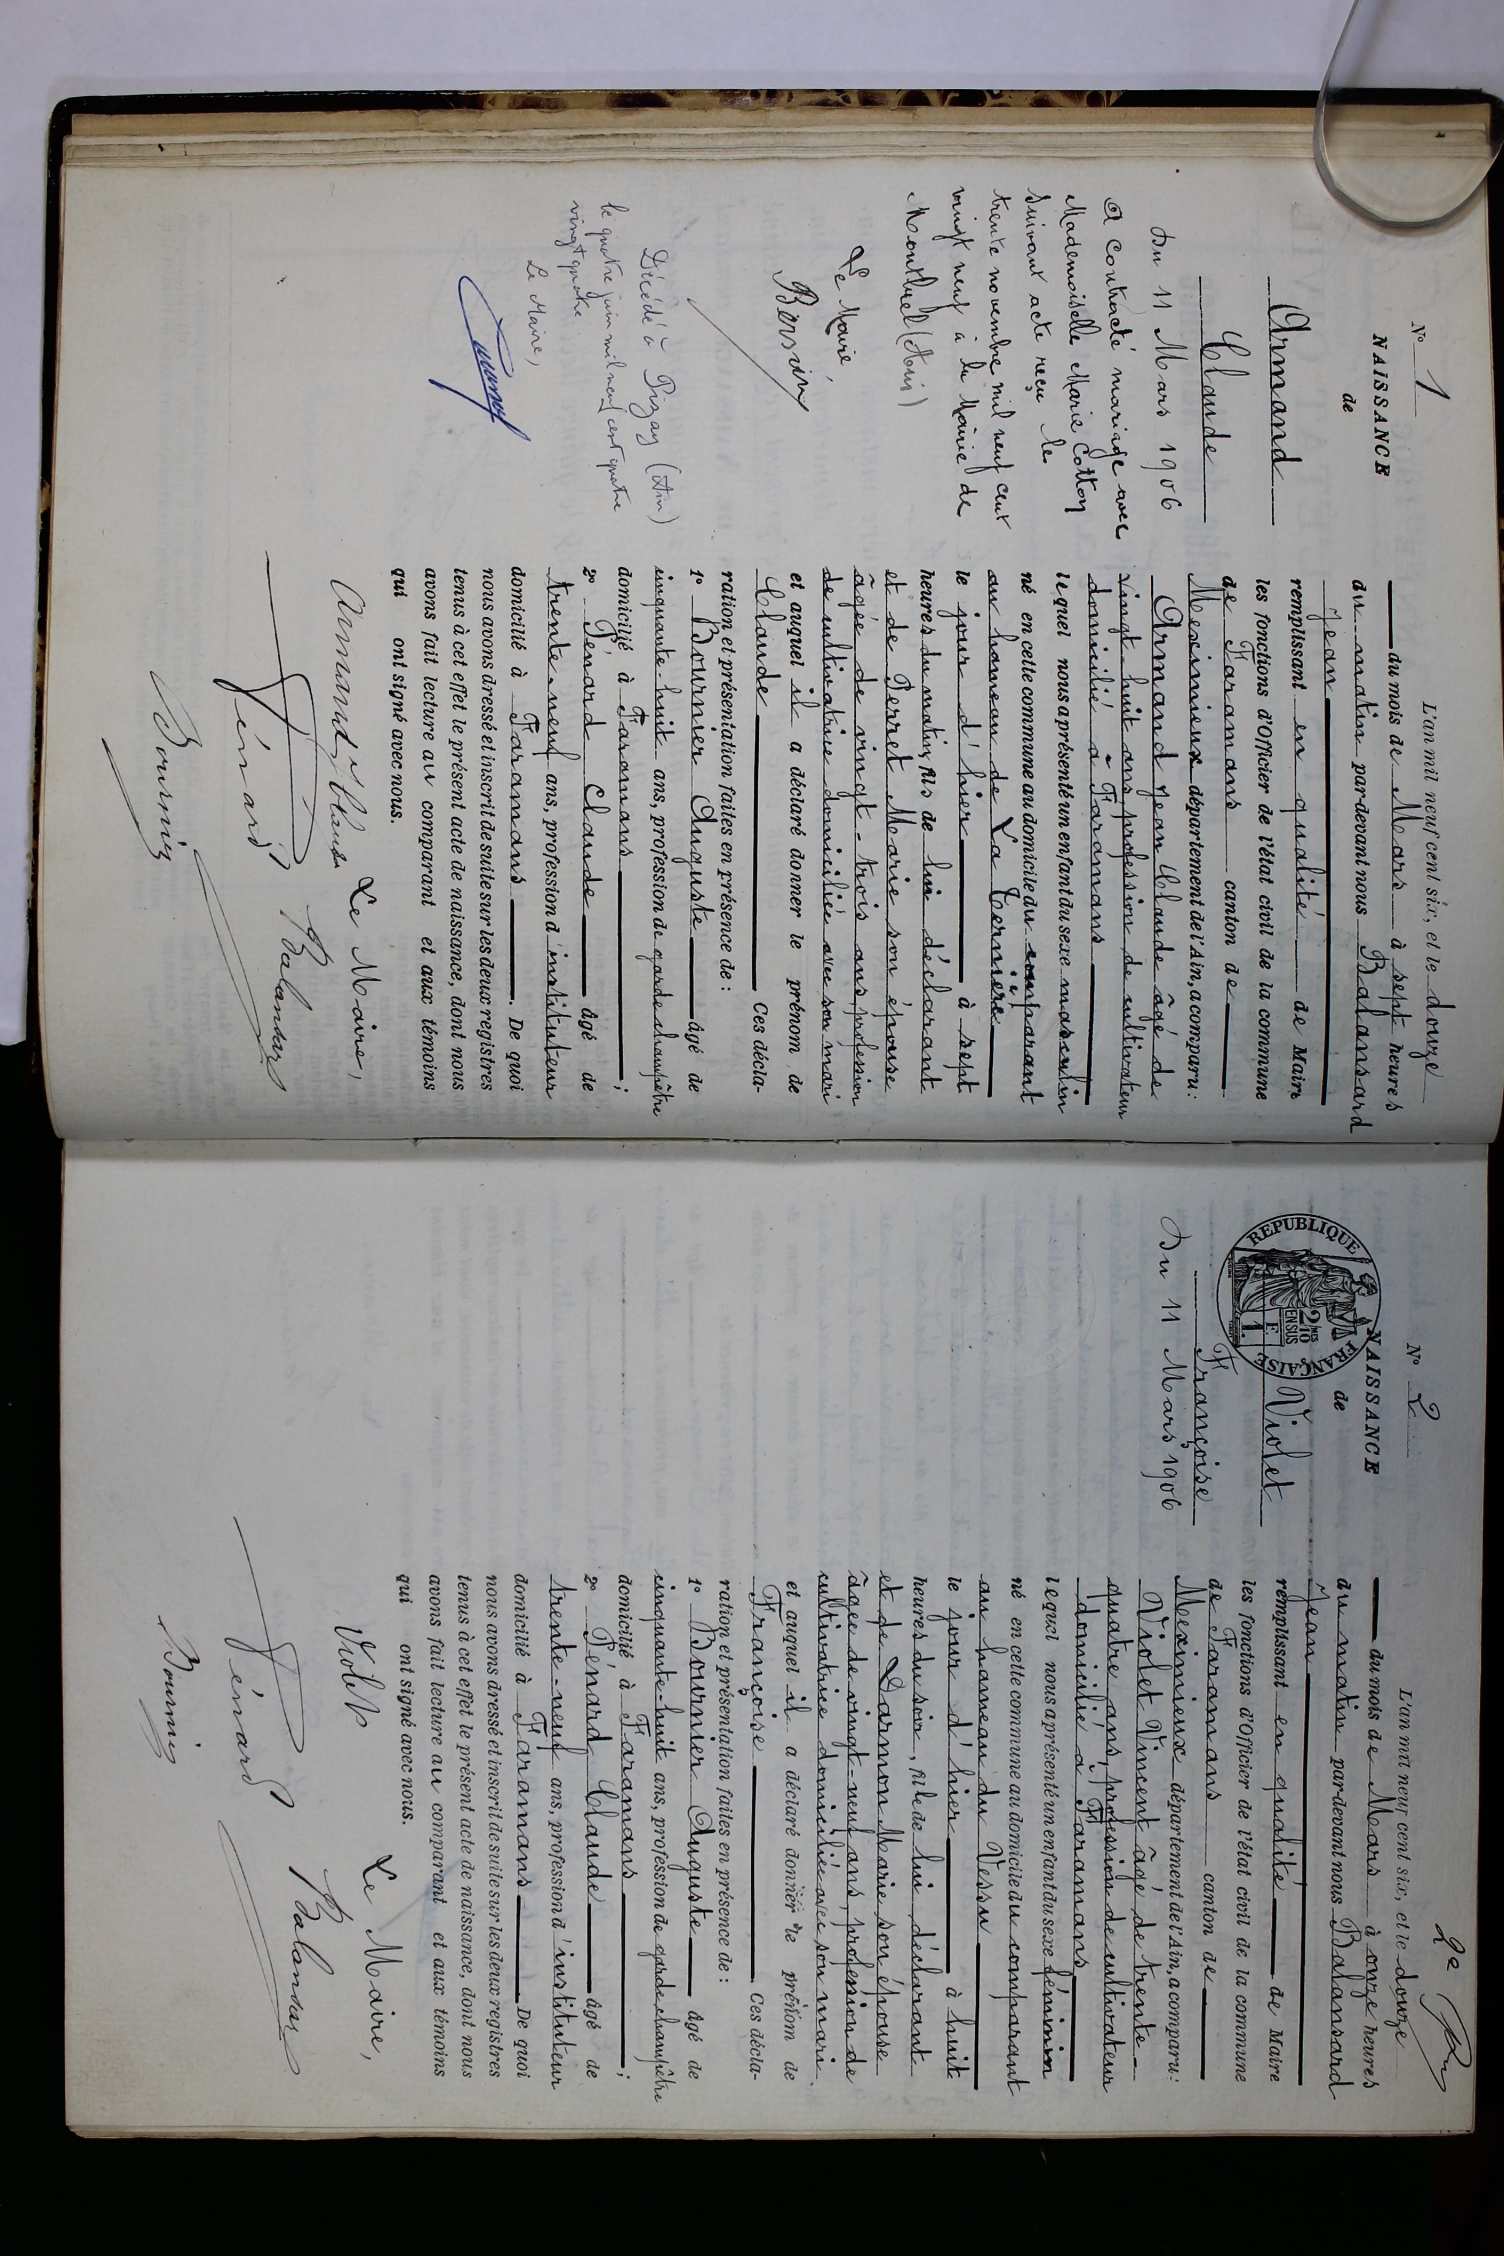 N° 1
NAISSANCE
de
Armand
Claude
Du 11 Mars 1906
A contracté mariage avec
Mademoiselle Marie Cotton
suivant acte reçu le
trente novembre mil neuf cent
vingt neuf à la Mairie de
Montluel (Ain)
Le Maire
Décédé à Pizay (Ain)
le quatre juin mil neuf cent quatre
vingt quatre.
Le Maire,
L'an mil neuf cent six, et le douze
du mois de Mars à sept heures
du matin par-devant nous Balansard
Jean
remplissant en qualité de Maire
les fonctions d'Officier de l'état civil de la commune
de Faramans canton de
Meximieux département de l'Ain, a comparu:
Armand Jean Claude âgé de
vingt-huit ans, profession de cultivateur
domicilié à Faramans
lequel nous a présenté un enfant du sexe masculin
né en cette commune au domicile du comparant
au hameau de La Ternière
le jour d'hier à sept
heures du matin, fils de lui déclarant
et de Perret Marie son épouse
âgée de vingt-trois ans, profession
de cultivatrice domiciliée avec son mari
et auquel il a déclaré donner le prénom de
Claude Ces décla-
ration et présentation faites en présence de:
1° Bournier Auguste âgé de
cinquante-huit ans, profession de garde champêtre
domicilié à Faramans;
2° Pénard Claude âgé de
trente-neuf ans, profession d'instituteur
domicilié à Faramans. De quoi
nous avons dressé et inscrit de suite sur les deux registres
tenus à cet effet le présent acte de naissance, dont nous
avons fait lecture au comparant et aux témoins
qui ont signé avec nous.
Le Maire,
Armand Claude
Balansard
Pénard
Bournier
2e
N° 2
NAISSANCE
de
REPUBLIQUE FRANÇAISE
2 MES
10
EN SUS
1 F.
Violet
Françoise
Du 11 Mars 1906
L'an mil neuf cent six, et le douze
du mois de Mars à onze heures
du matin par-devant nous Balansard
Jean
remplissant en qualité de Maire
les fonctions d'Officier de l'état civil de la commune
de Faramans canton de
Meximieux département de l'Ain, a comparu:
Violet Vincent âgé de trente-
quatre ans, profession de cultivateur
domicilié à Faramans
lequel nous a présenté un enfant du sexe féminin
né en cette commune au domicile du comparant
au hameau du Vessu
le jour d'hier à huit
heures du soir, fille de lui déclarant
et de Darmon Marie son épouse
âgée de vingt-neuf ans, profession de
cultivatrice domiciliée avec son mari
et auquel il a déclaré donner le prénom de
Françoise Ces décla-
ration et présentation faites en présence de:
1° Bournier Auguste âgé de
cinquante-huit ans, profession de garde champêtre
domicilié à Faramans;
2° Pénard Claude âgé de
trente-neuf ans, profession d'instituteur
domicilié à Faramans De quoi
nous avons dressé et inscrit de suite sur les deux registres
tenus à cet effet le présent acte de naissance, dont nous
avons fait lecture au comparant et aux témoins
qui ont signé avec nous.
Le Maire,
Violet
Balansard
Pénard
Bournier